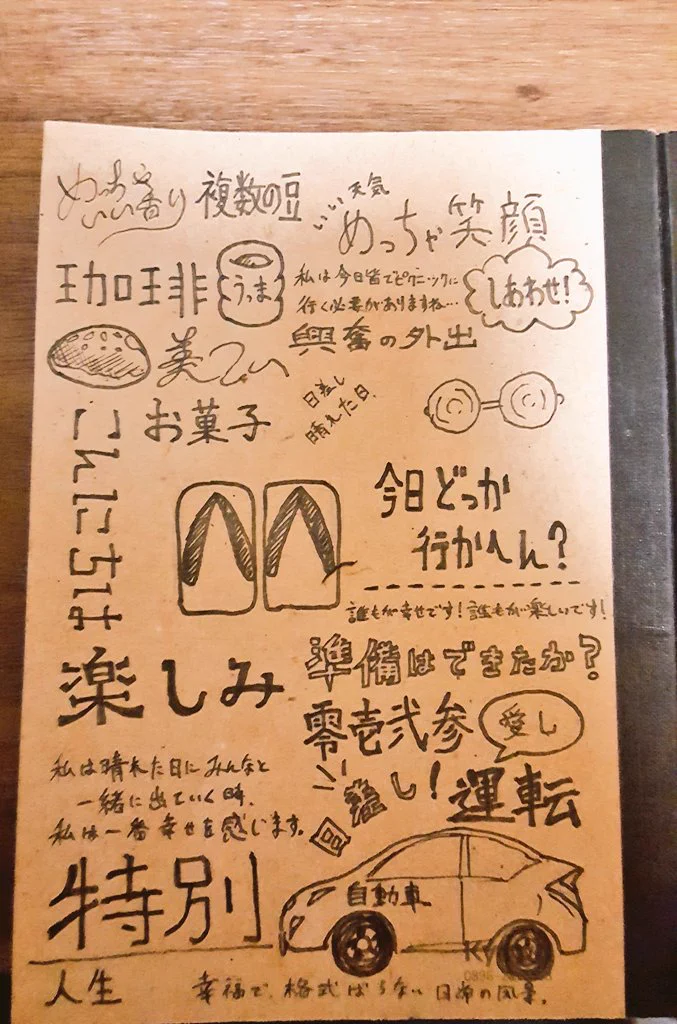 めっちゃ
いい香り
複数の豆
いい天気
めっちゃ笑顔
珈琲
うっま
私は今日皆でピクニックに
行く必要がありますね…
しあわせ!
興奮の外出
美
お菓子
日差し
晴れた日
こんにちは
今日どっか
行かへん?
誰もが幸せです!誰もが楽しいです!
楽しみ
準備はできたか?
零壱弐参
愛し
私は晴れた日にみんなと
一緒に出ていく時、
私は一番幸せを感じます。
日差し!
運転
特別
自動車
人生
幸福で、格式ばらない日常の風景。